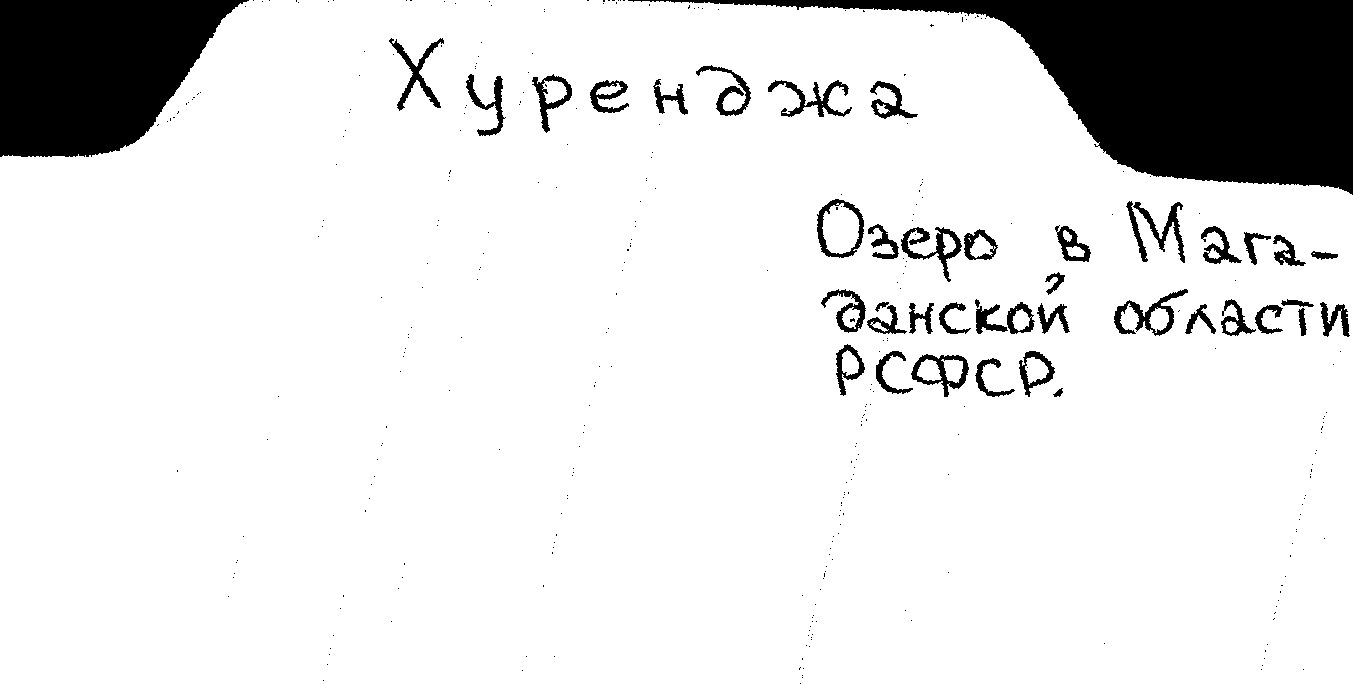 Хуренджа
Озеро в Мага-
данской области
РСФСР.